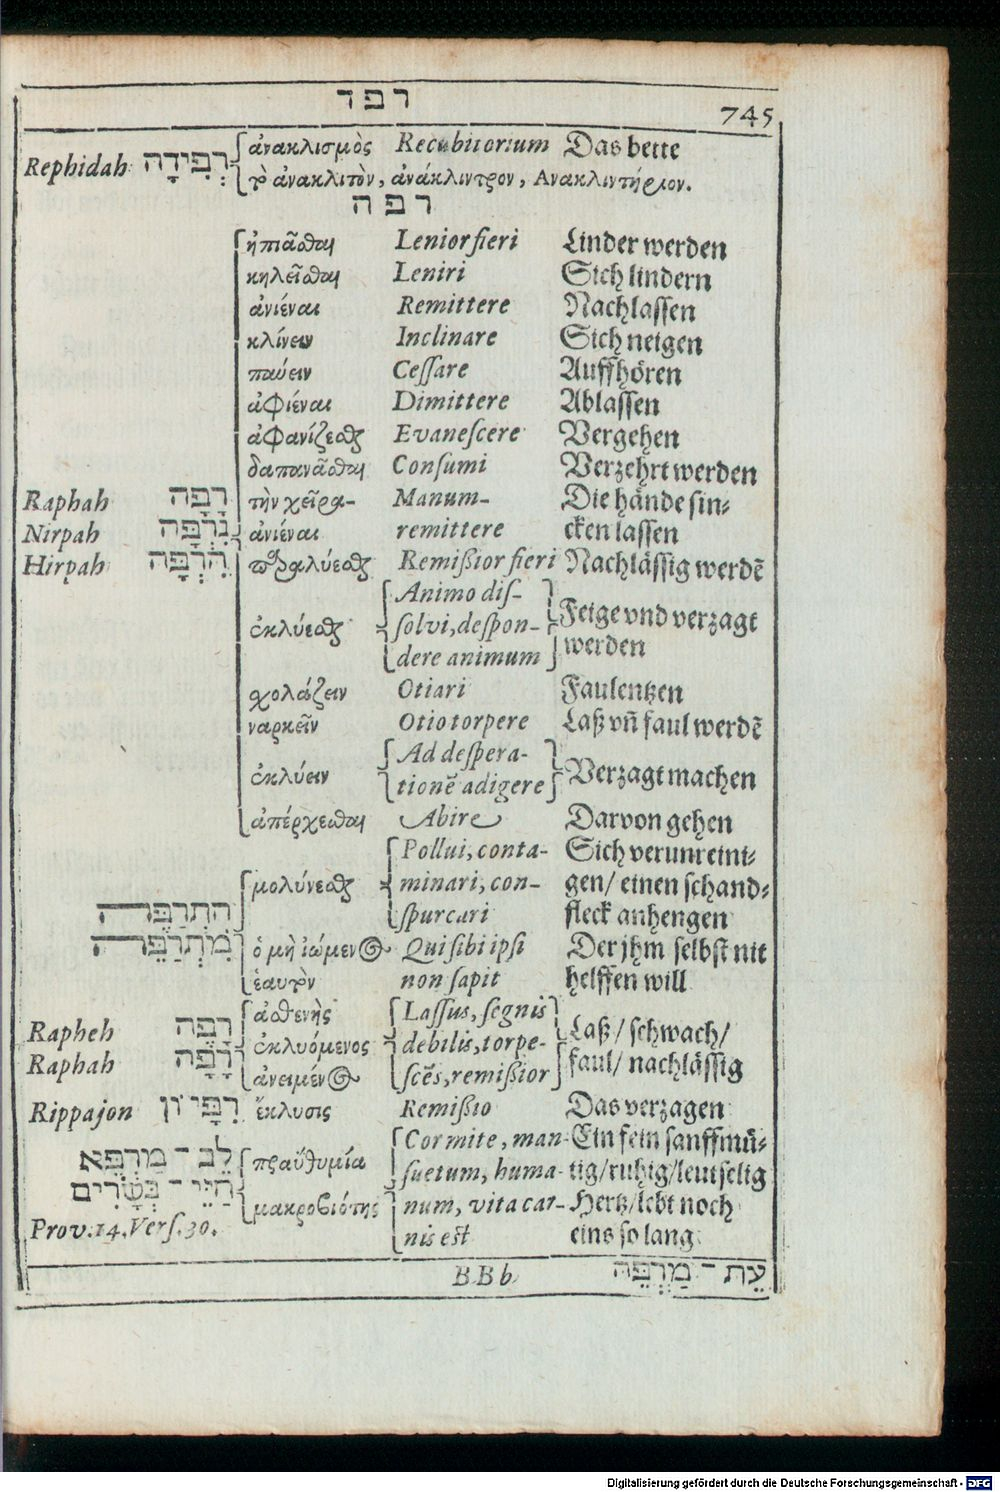 רפד
745
Rephidah רְפִידָה ἀνακλισμὸς Recubitorium Das bette
τὸ ἀνακλιτὸν, ἀνάκλιντρον, Ἀνακλιντήριον.
רפה
ἠπιᾶσθαι Lenior fieri Linder werden
κηλεῖσθαι Leniri Sich lindern
ἀνιέναι Remittere Nachlassen
κλίνειν Inclinare Sich neigen
παύειν Cessare Auffhören
ἀφιέναι Dimittere Ablassen
ἀφανίζεσθαι Evanescere Vergehen
δαπανᾶσθαι Consumi Verzehrt werden
Raphah רָפָה τὴν χεῖρα- Manum- Die hände sin-
Nirpah נִרְפָּה ἀνιέναι remittere cken lassen
Hirpah הִרְפָּה παραλύεσθαι Remißior fieri Nachlässig werdẽ
Animo dis-
ἐκλύεσθαι solvi, despon- Feige vnd verzagt
dere animum werden
σχολάζειν Otiari Faulentzen
ναρκεῖν Otio torpere Laß vñ faul werdẽ
Ad despera-
ἐκλύειν tionẽ adigere Verzagt machen
ἀπέρχεσθαι Abire Darvon gehen
Pollui, conta- Sich verunreini-
μολύνεσθαι minari, con- gen/ einen schand-
הִתְרַפֵּה spurcari fleck anhengen
מִתְרַפֵּה ὁ μὴ ἰώμενος Qui sibi ipsi Der jhm selbst nit
ἑαυτὸν non sapit helffen will
Rapheh רָפֵה ἀσθενὴς Lassus, segnis Laß/ schwach/
ἐκλυόμενος debilis, torpe-
Raphah רָפָה ἀνειμένος scẽs, remißior faul/ nachlässig
Rippajon רִפָּיוֹן ἔκλυσις Remißio Das verzagen
Cor mite, man- Ein fein sanffmü-
לֵב־מַרְפֵּא πραΰθυμία suetum, huma- tig/ ruhig/ leutselig
חַיֵּי־בְּשָׂרִים μακροβιότης num, vita car- Hertz/ lebt noch
Prov. 14. Vers. 30. nis est eins so lang.
BBb
עֵת־מַרְפֵּה
Digitalisierung gefördert durch die Deutsche Forschungsgemeinschaft - DFG